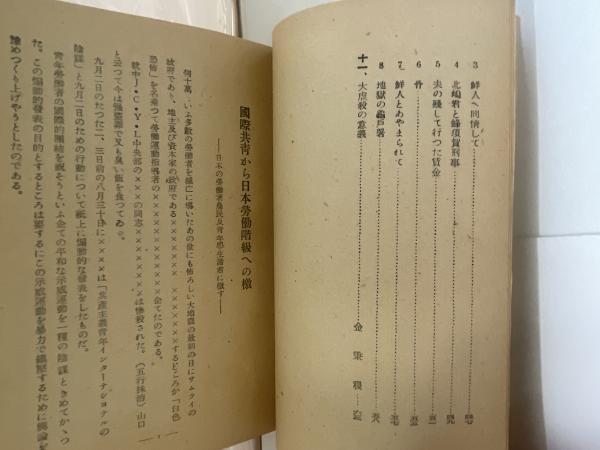 3 鮮人へ同情して
4 北嶋君と蜂須賀刑事
5 夫の殘して行つた賃金
6 骨
7 鮮人とあやまられて
8 地獄の龜戸署
十一、大虐殺の意義
國際共靑から日本勞働階級への檄
──日本の勞働者農民及靑年學生諸君に檄す──
何十萬といふ多數の勞働者を滅亡に導いたあの世にも怖ろしい大地震の最初の日にサムライの
政府であり、地主及び資本家の政府である××××××××××するどころか「白色
恐怖」を名乘つて勞働運動指導者の×××××××××企てたのである。
就中J・C・Y・L中央部の×××の同志××××××は慘殺された。（五行抹消）山口
と云つて今は强盜罪で又も臭い飯を食つてゐる。
九月二日のたつた二、三日前の八月三十日に××××は「共產主義靑年インターナショナルの
陰謀」と九月二日のための行動について紙上に煽動的な發表をしたものだ。
靑年勞働者の國際的團結を說そうといふ企ての平和な示威運動を一種の陰謀ときめてかゝつ
た。この煽動的發表の目的とするところは要するにこの示威運動を暴力で鎭壓するために輿論を
豫めつくり上げやうとしたのである。
1